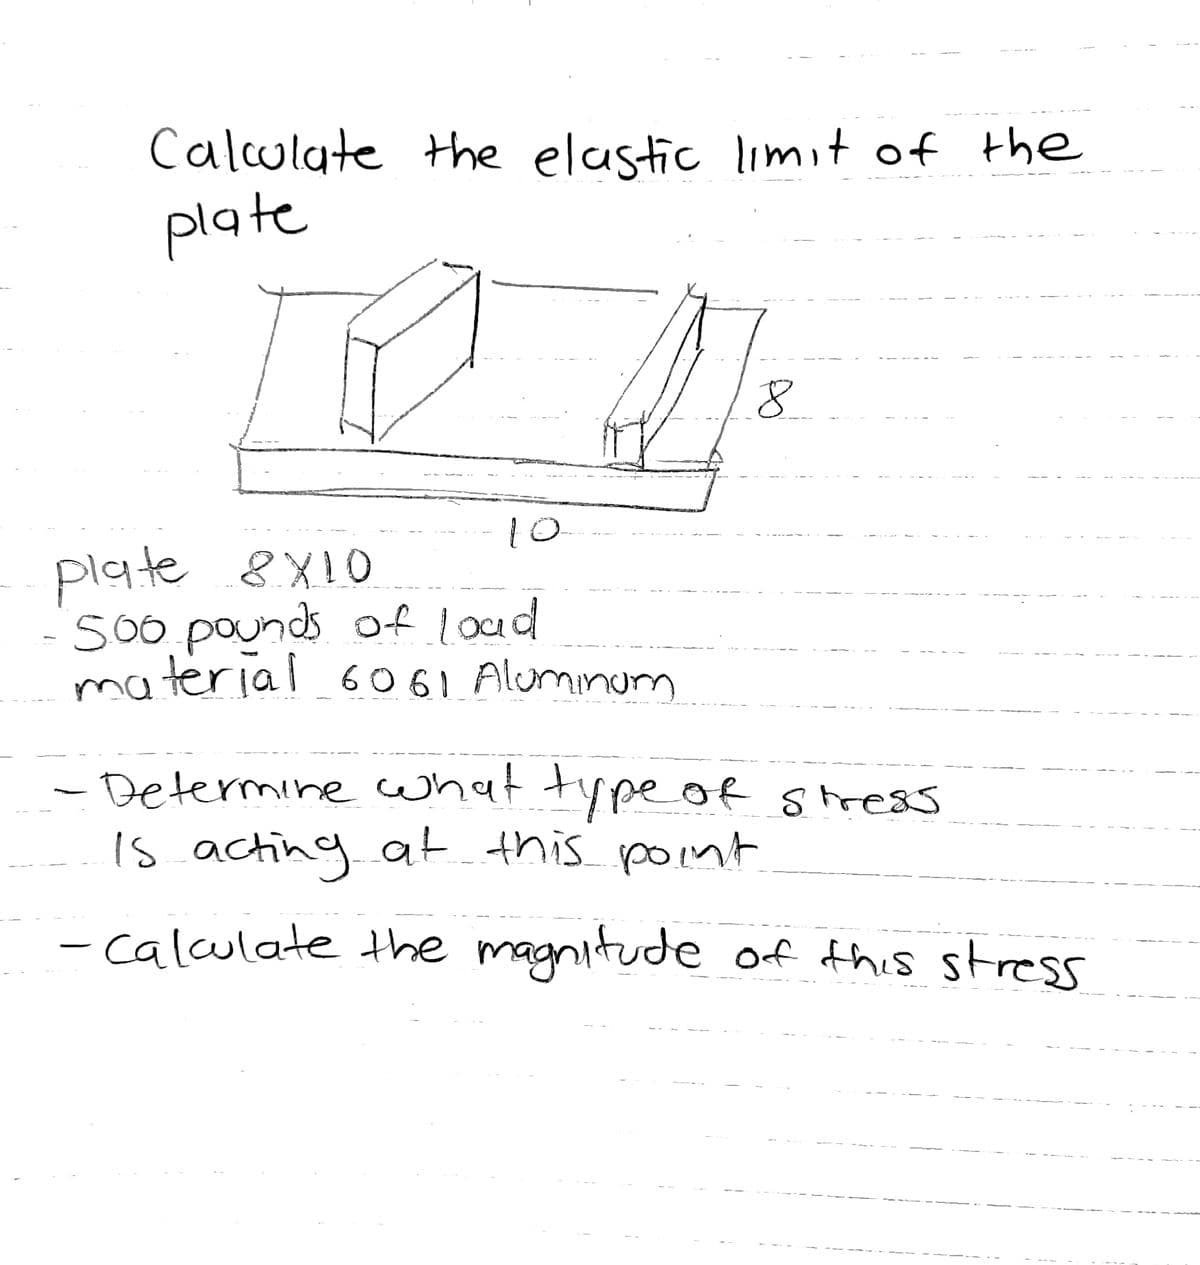 Calculate the elastic limit of the
plate
8
10
plate 8X10
- 500 pounds of load
material 6061 Aluminum
- Determine what type of stress
Is acting at this point
- Calculate the magnitude of this stress